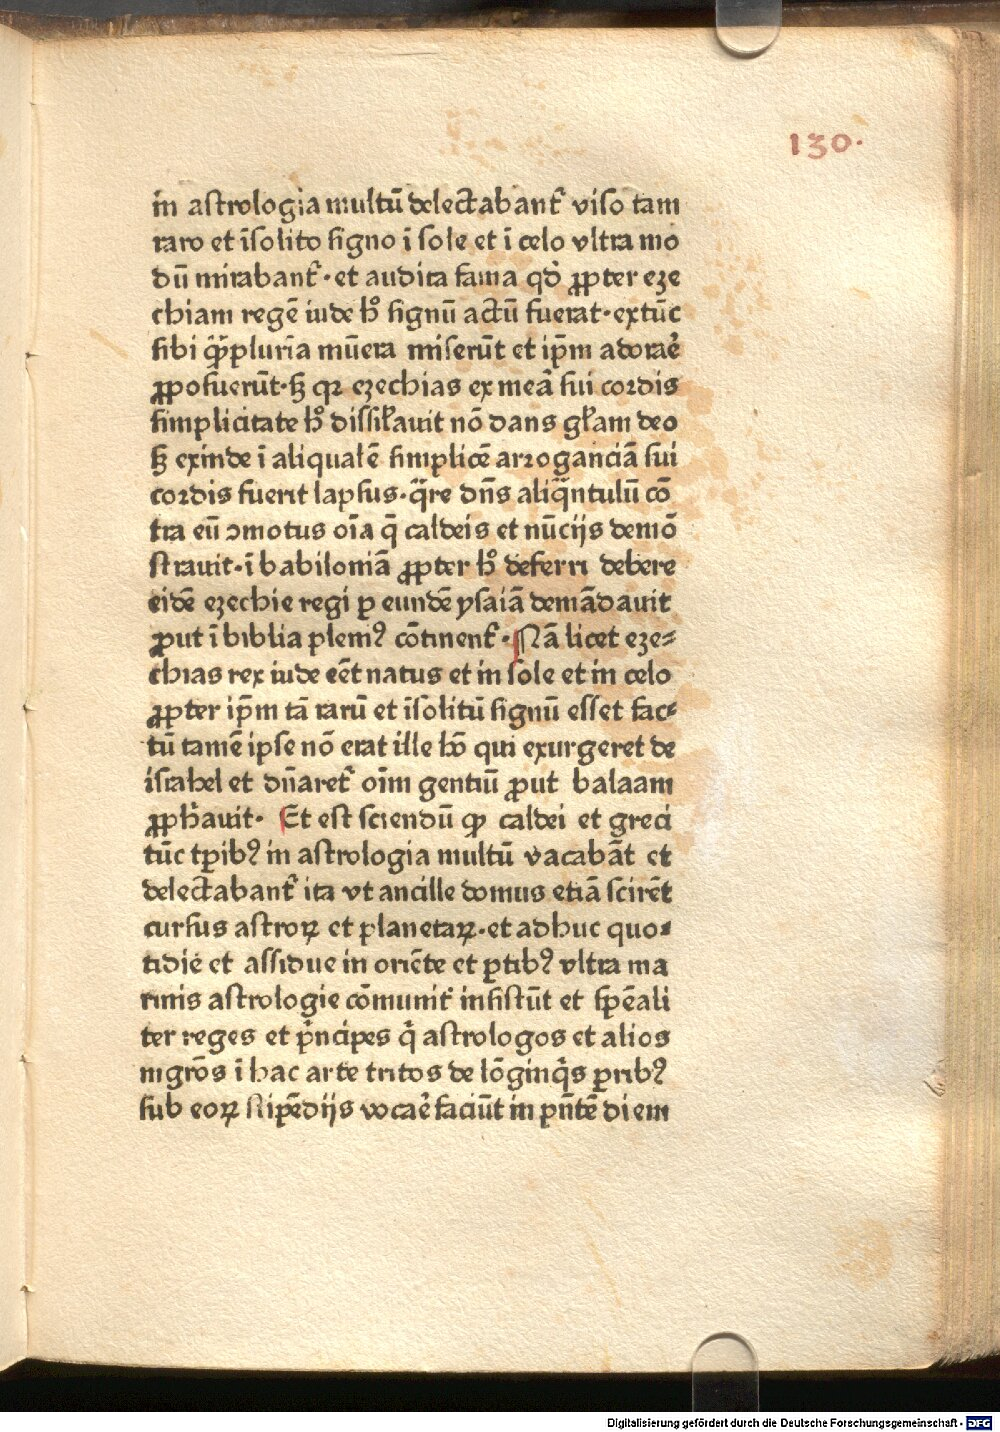 130.
in astrologia multū delectabant᷑ viso tam
raro et īsolito signo ī sole et ī celo vltra mo
dū mirabant᷑·et audita fama qđ ꝓpter eze
chiam regē iude hͦ signū actū fuerat·extūc
sibi ꝙᷓpluria mūera miserūt et ip̄m adoraē
ꝓposuerūt·sꝫ qꝛ ezechias ex meā sui cordis
simplicitate hͦ dissiƚauit nō dans gƚam deo
sꝫ exinde ī aliqualē simplicē arrogan ciā sui
cordis fuerit lapsus·qᷓre dn̄s aliqᷓntulū cō
tra eū ꝯmotus oīa q̄ caldeis et nūcijs demō
strauit·ī babiloniā ꝓpter hͦ deferri debere
eidē ezechie regi ꝑ eundē ysaiā demādauit
ꝓut ī biblia plemꝰ cōtinent᷑·Nā licet eze⸗
chias rex iude eēt natus et in sole et in celo
ꝓpter ip̄m tā rarū et īsolitū signū esset fac⸗
tū tamē ipse nō erat ille hō qui exurgeret de
israhel et dn̄aret᷑ oīm gentiū ꝓut balaam
ꝓph̄auit· Et est sciendū ꝙ caldei et greci
tūc tꝑibꝰ in astrologia multū vacabāt et
delectabant᷑ ita vt ancille domus etiā scirēt
cursus astroꝝ et planetaꝝ·et adhuc quo⸗
tidie et assidue in oriēte et ꝑtibꝰ vltra ma
rinis astrologie cōmunit᷑ insistūt et sp̄eali
ter reges et pͥncipes qͥ astrologos et alios
nigrōs ī hac arte tritos de lōginqͥs ꝑtibꝰ
sub eoꝝ stipēdijs vocaē faciūt in pn̄tē diem
Digitalisierung gefördert durch die Deutsche Forschungsgemeinschaft - DFG